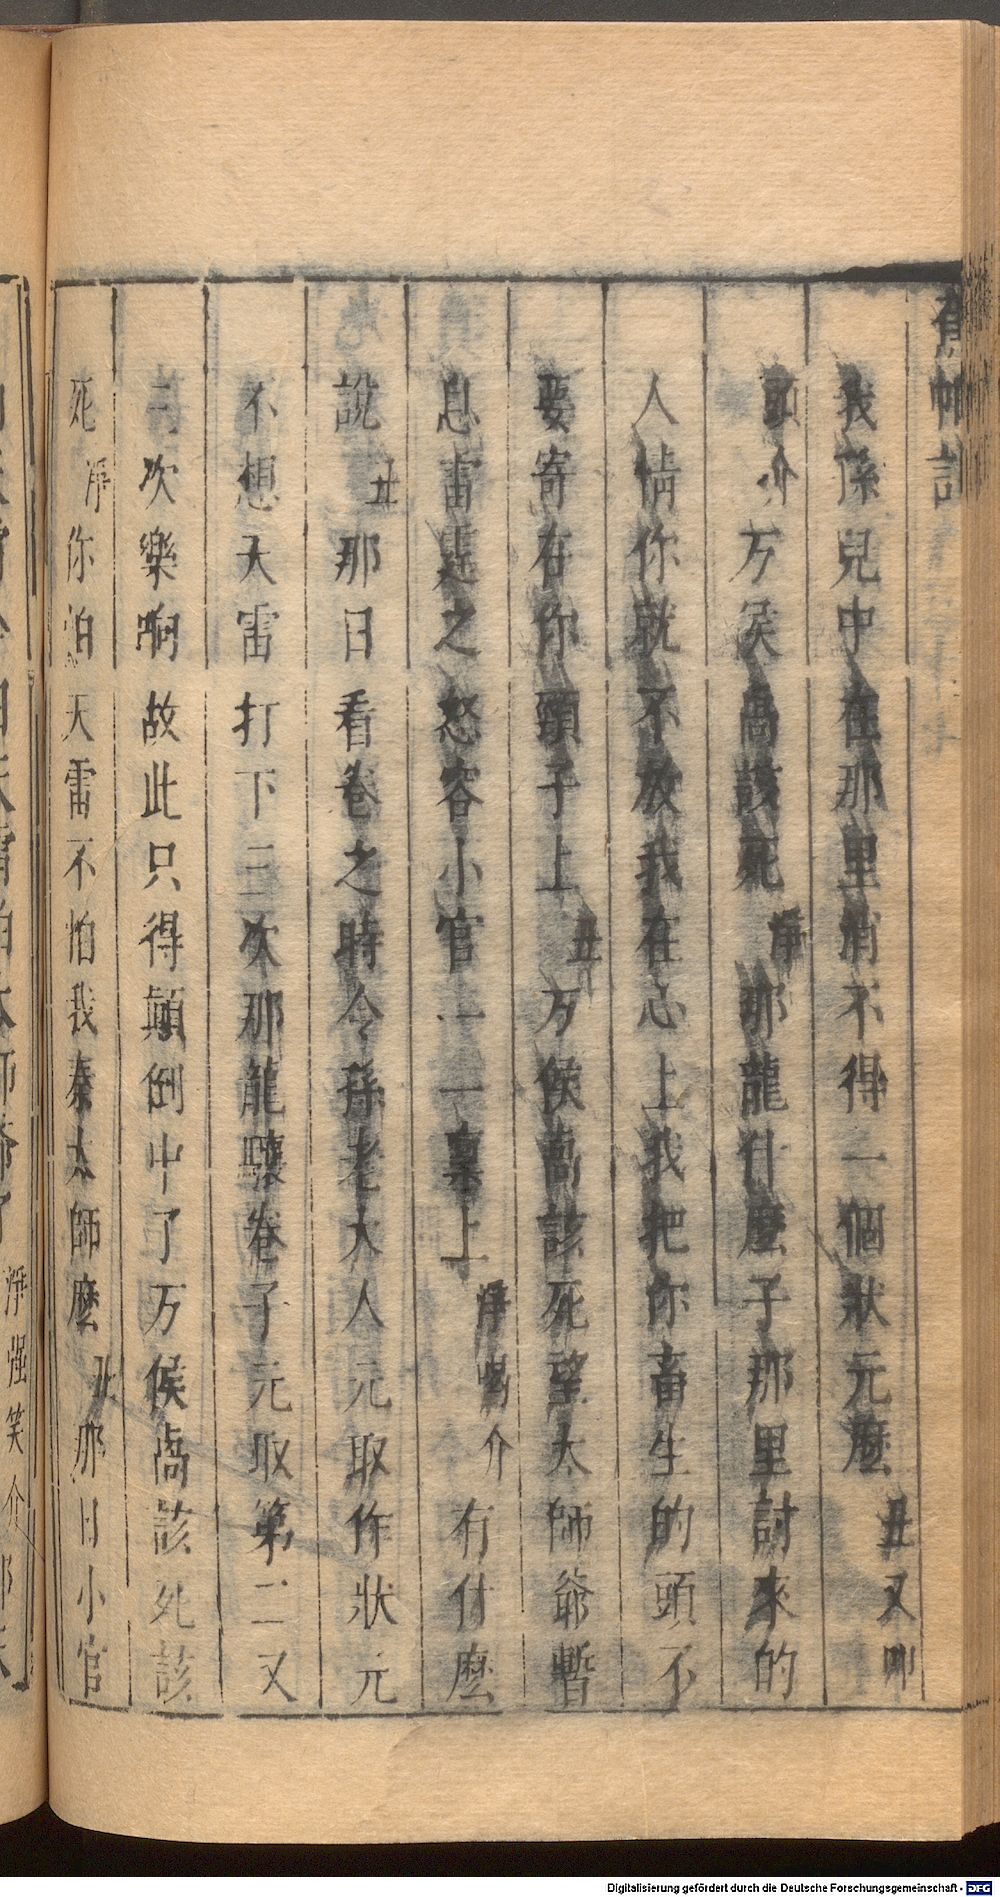 蕉帕記
我孫兒中在那里消不得一個狀元麼丑又叩
頭介万侯卨該死淨那龍什麼子那里討來的
人情你就不放我在心上我把你畜生的頭不
要寄在你頸子上丑万侯卨該死望太師爺暫
息雷霆之怒容小官一一稟上淨喝介有什麼
說丑那日看卷之時令孫老大人元取作狀元
不想天雷打下三次那龍驤卷子元取第二又
二次樂响故此只得顛倒中了万侯卨該死該
死淨你怕天雷不怕我秦太師麼丑那日小官
淨強笑介
Digitalisierung gefördert durch die Deutsche Forschungsgemeinschaft - DFG